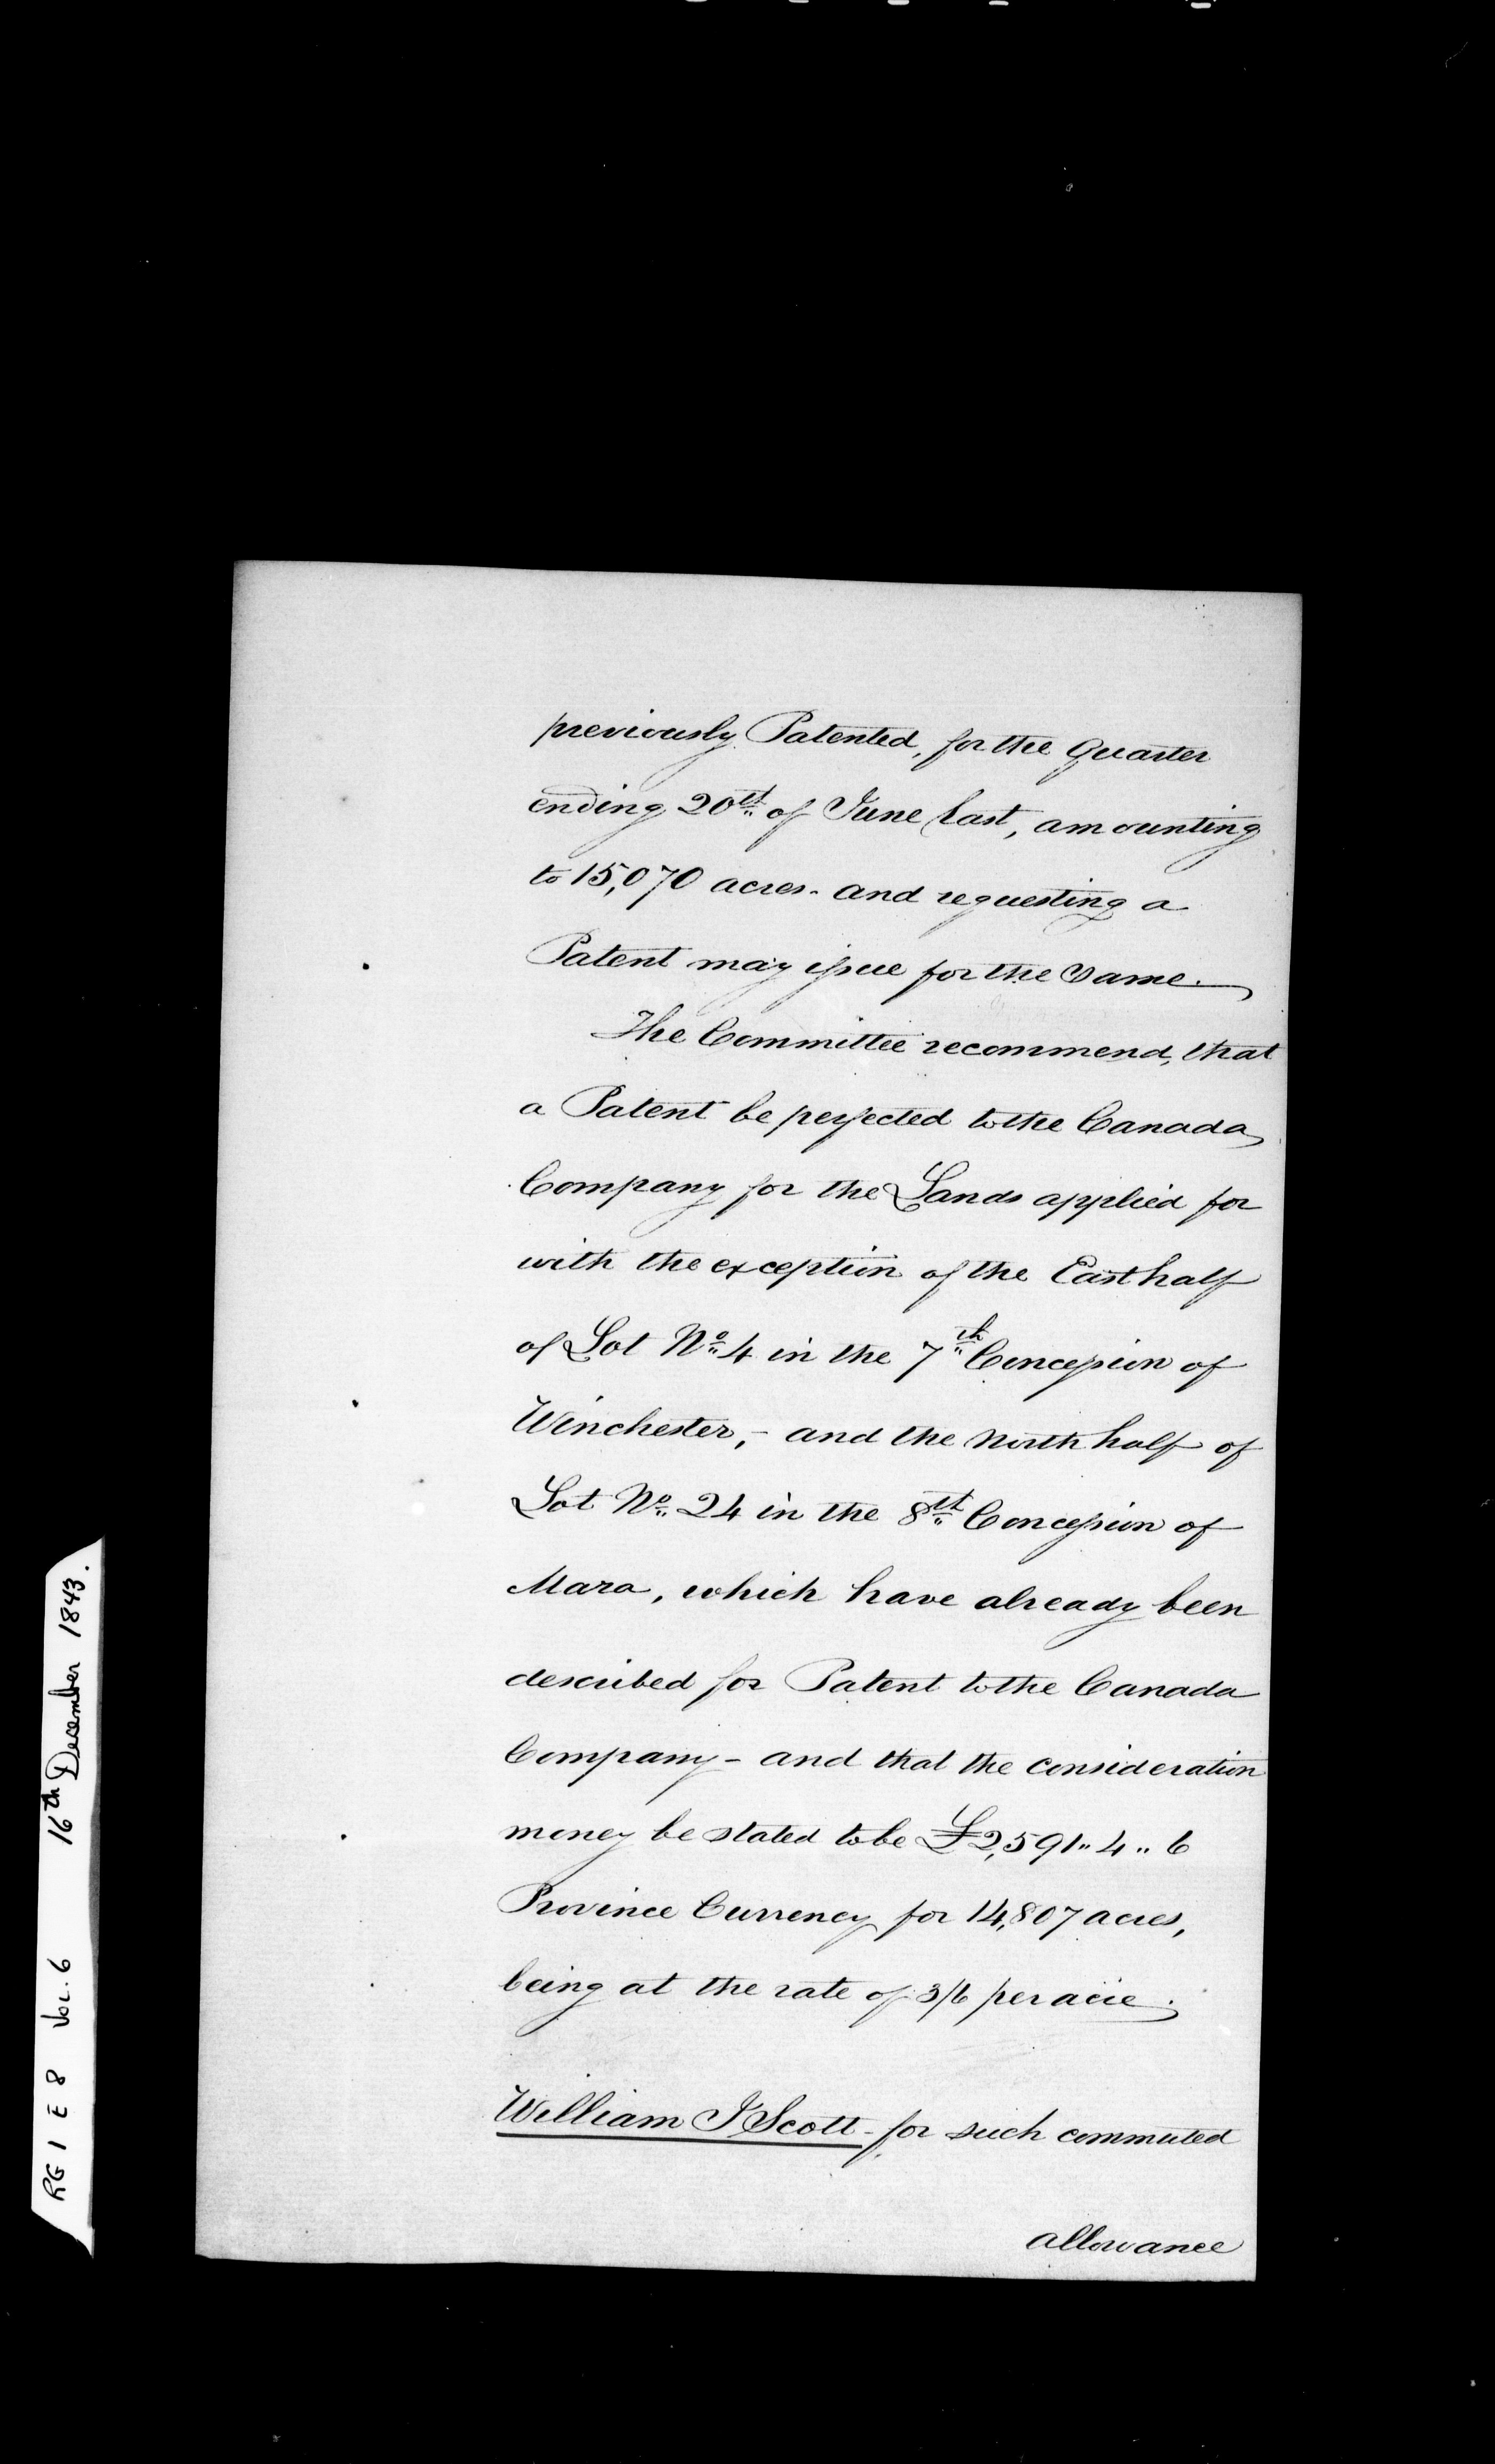 previously Patented, for the quarter
ending 20th of June last, amounting
to 15,070 acres - and requesting a
Patent may issue for the Same.
The Committee recommend, that
a Patent be perfected to the Canada
Company for the Lands applied for
with the exception of the East half
of Lot No 4 in the 7th Concession of
Winchester, - and the North half of
Lot No 24 in the 8th Concession of
Mara, which have already been
described for Patent to the Canada
Company - and that the consideration
money be stated to be £2,591 " 4 " 6
Province Currency for 14,807 acres,
being at the rate of 3/6 per acre.
William J Scott - for such commuted
allowance
RG 1 E 8 Vol. 6 16th December 1843.